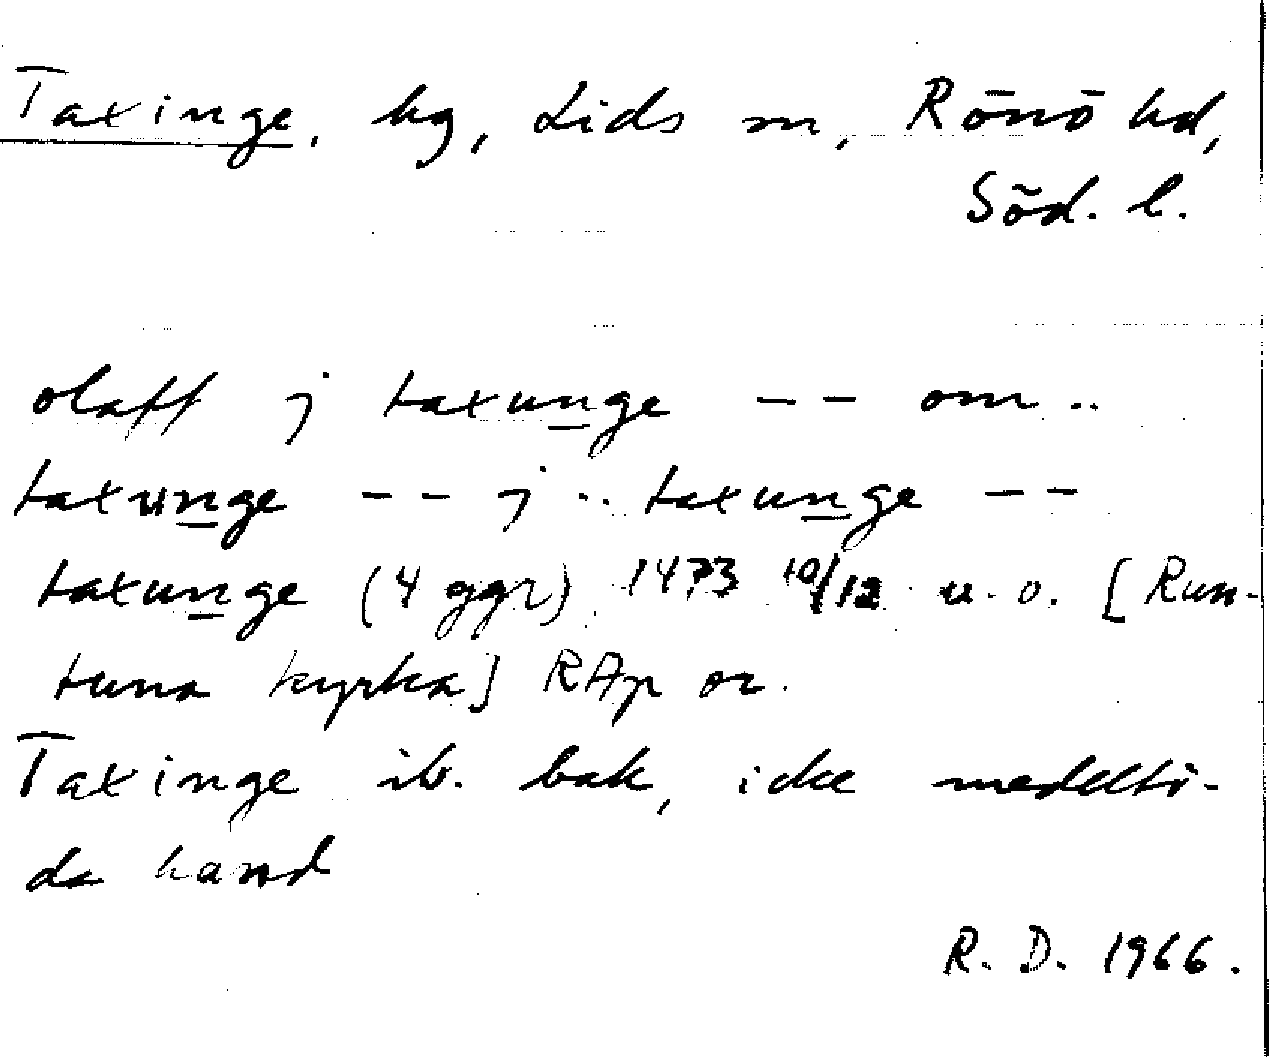 Taxinge, hg, Lids sn, Rönö hd,
Söd. l.
olaff j taxunge -- om ..
taxunge -- j .. taxunge --
taxunge (4 ggr) 1473 10/12 u. o. [Run-
tuna kyrka] RAp or.
Taxinge ib. bak, icke medelti-
da hand
R. D. 1966.